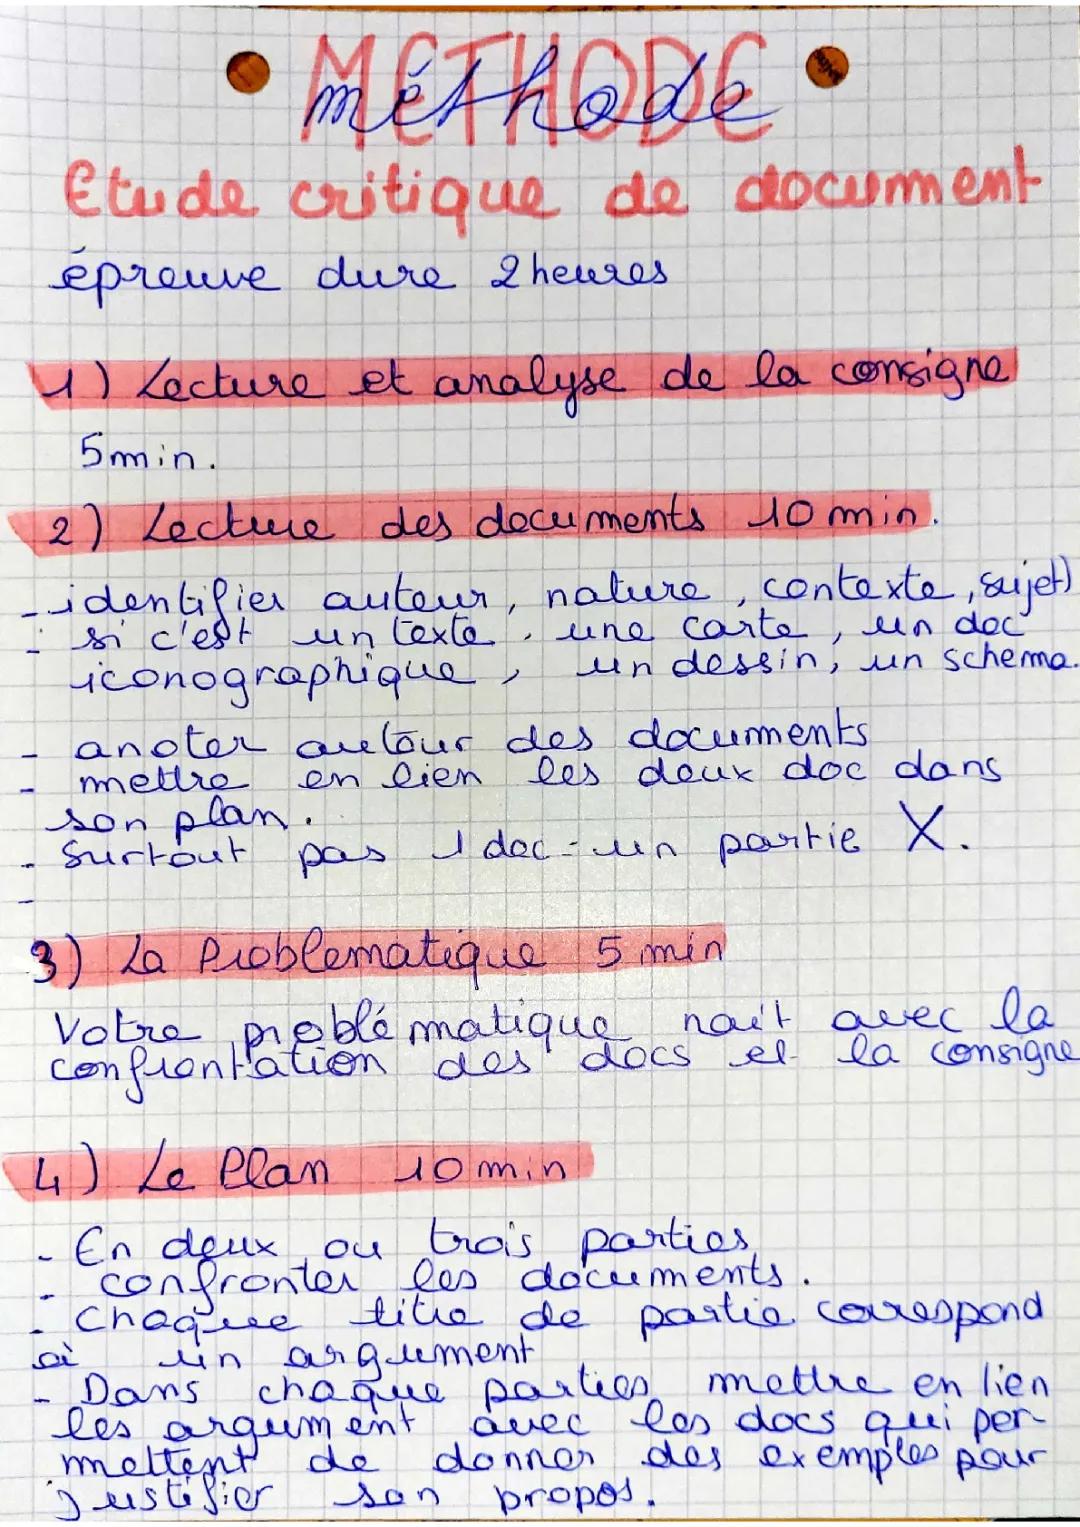 METHODE
méthode
Etude critique de document
épreuve dure 2 heures
1) Lecture et analyse de la consigne
5min.
2) Lecture des documents 10 min.
- identifier auteur, nature, contexte, sujet)
- si c'est un texte, une carte, un doc
iconographique, un dessin, un schema.
- anoter autour des documents
- mettre en lien les deux doc dans
son plan.
- Surtout pas 1 doc = un partie X.
-
3) La Problematique 5 min
Votre problématique nait avec la
confrontation des docs et la consigne
4) Le Plan 10 min
- En deux ou trois parties
- confronter les documents.
- Chaque titre de partie correspond
à un argument
- Dans chaque parties mettre en lien
les argument avec les docs qui per-
mettent de donner des exemples pour
justifier son propos.